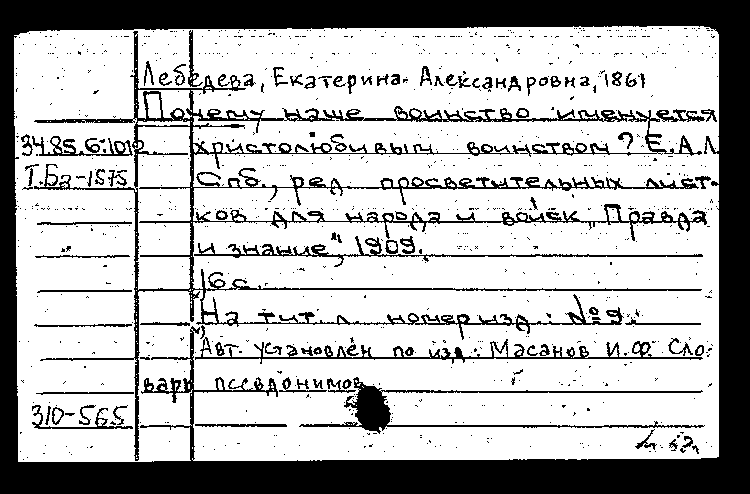 Лебедева, Екатерина Александровна, 1861
Почему наше воинство именуется
34.85.6.1010 христолюбивым воинством? Е.А.Л.
Т.Ба-1575 Спб., ред. просветительных лист-
ков для народа и войск „Правда
и знание", 1909.
16 с.
На тит. л. номер изд.: №9.
Авт. установлен по изд.: Масанов И.Ф. Сло-
варь псевдонимов
310-565